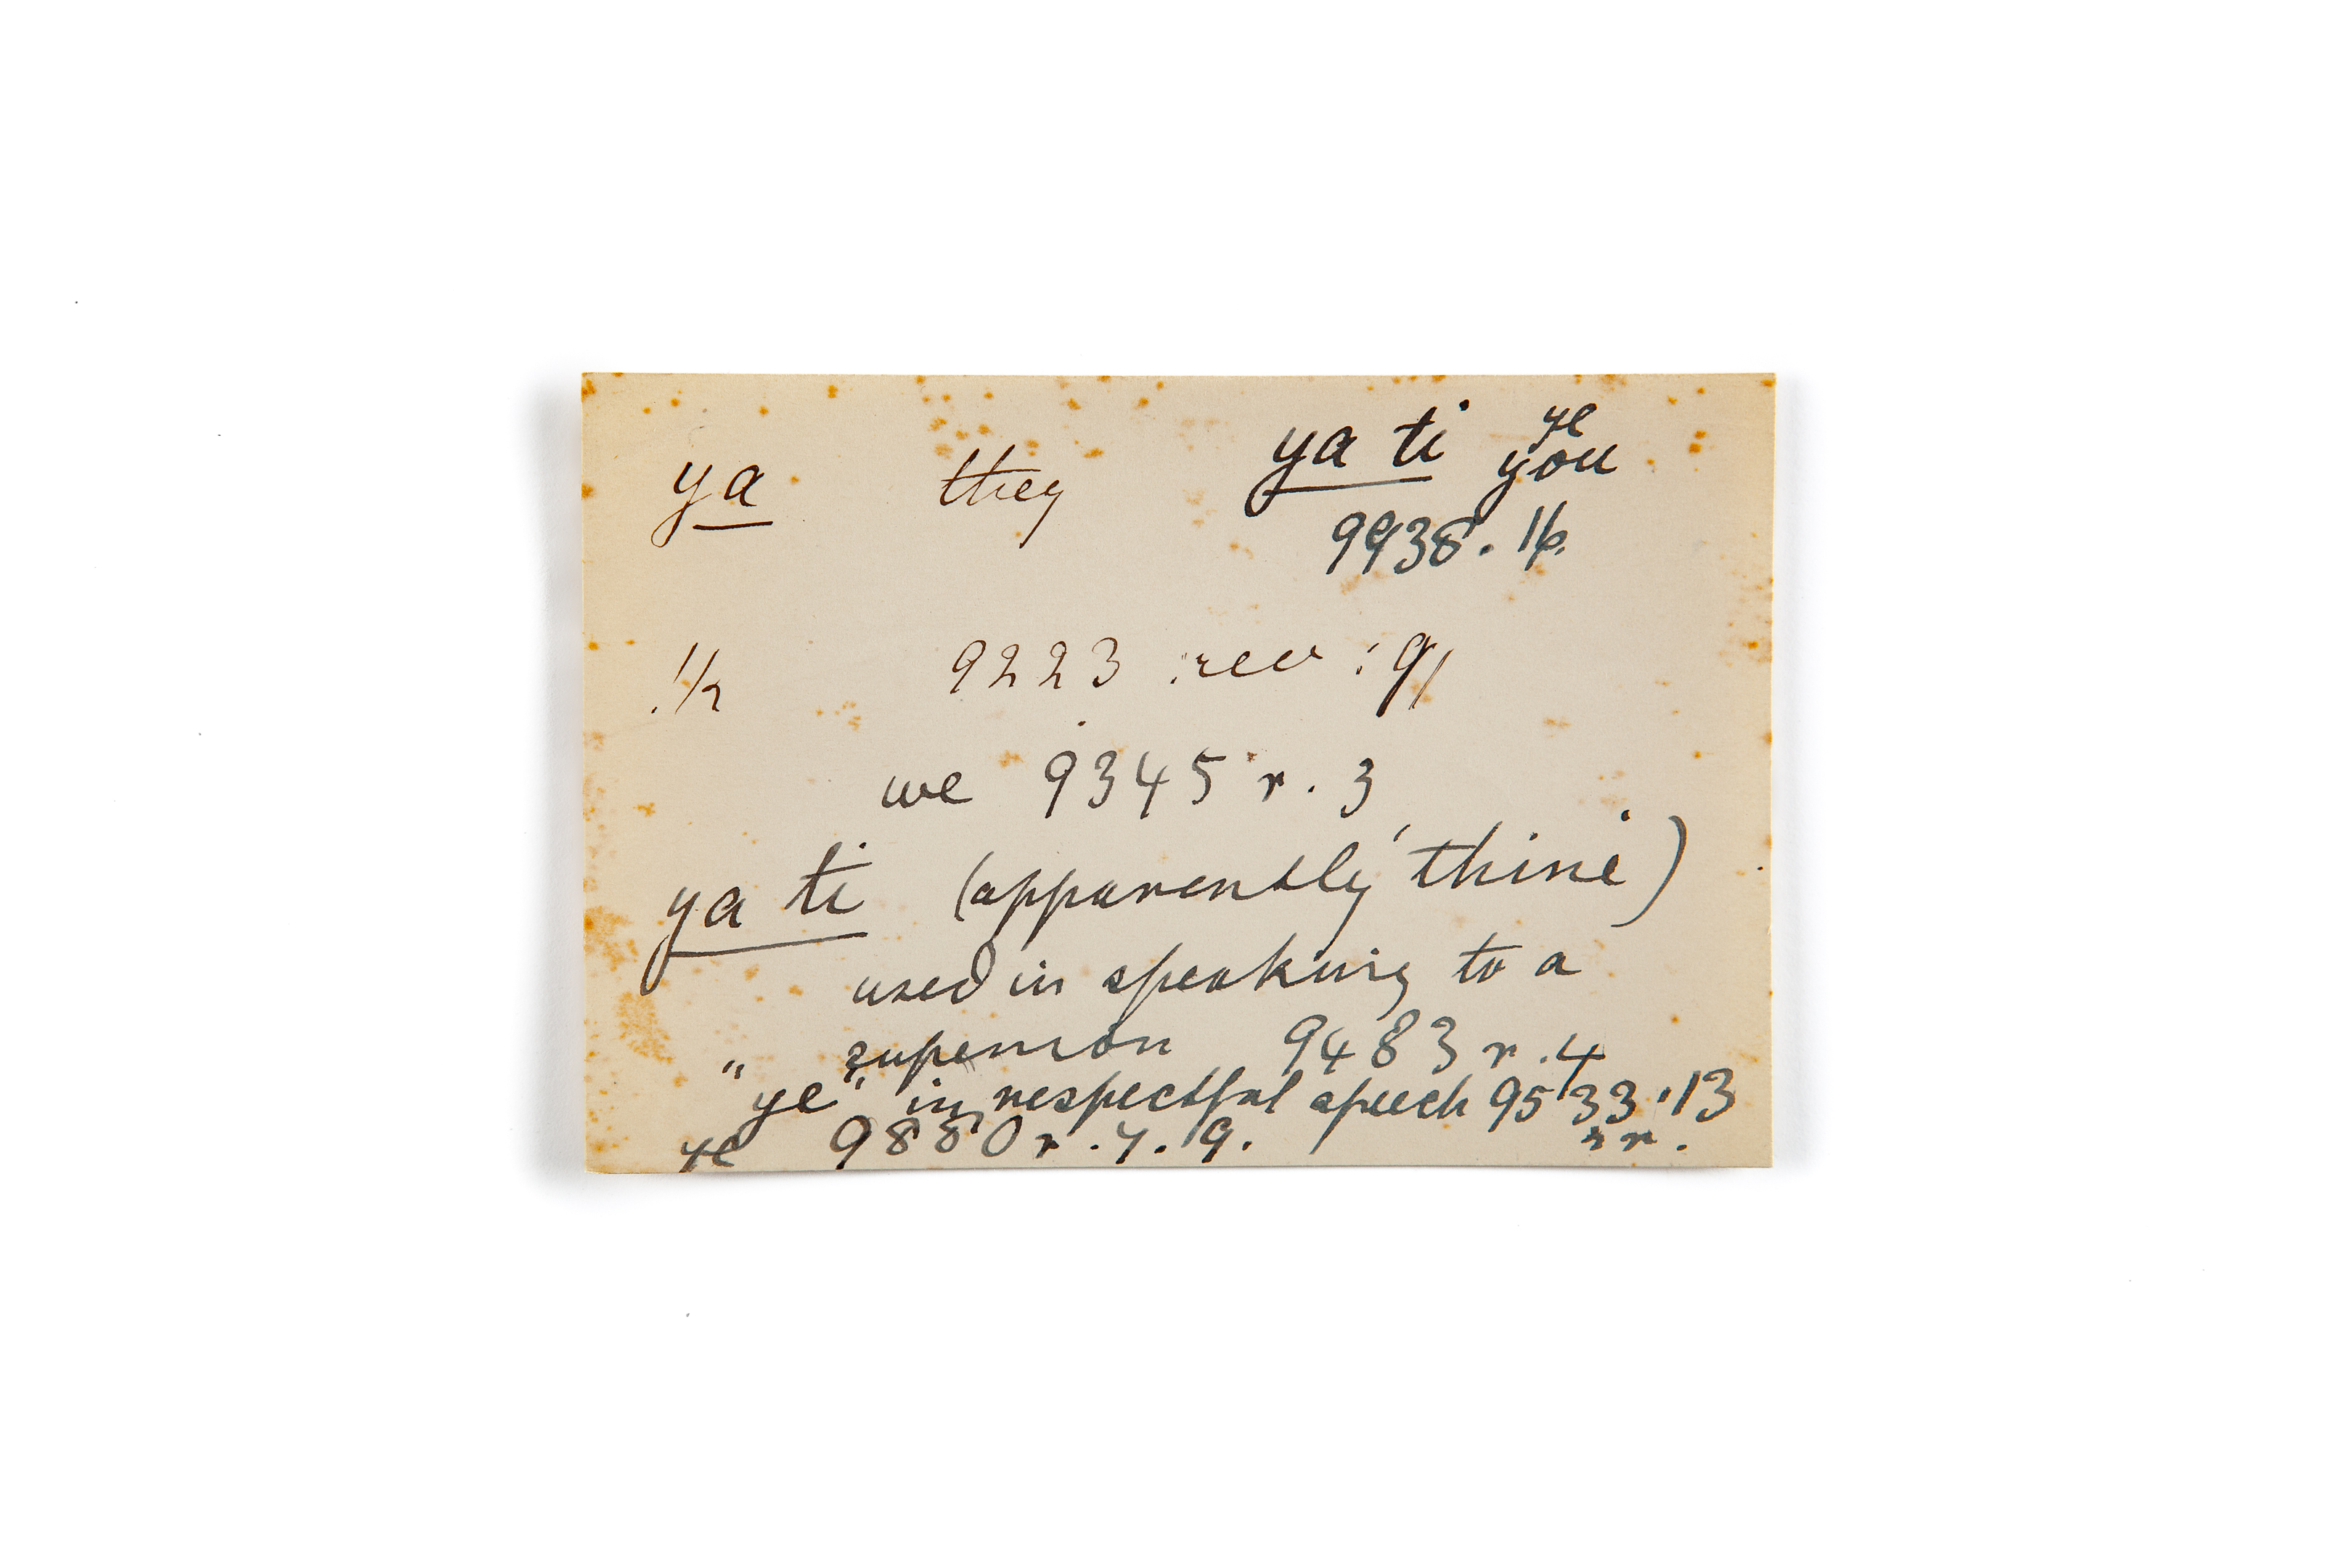 ya they ya ti ye you
9938. 16.
!k 9223 rev : 9,
we 9345 r. 3
ya ti (apparently 'thine')
used in speaking to a
superior 9483 r. 4
"ye" in respectful speech 9533. 13
ye 9880 r. 7. 9. rr.